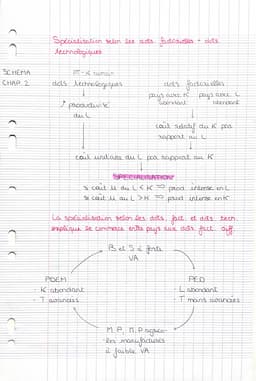 Spécialisation selon les dots factorielles + dots
technologiques
SCHEMA
CHAP. 2
K humain
dots technologiques
dots factorielles
pays avec K abondant
pays avec L abondant
↗ productivité
du L
coût relatif du K par
rapport au L
coût unitaire du L par rapport au K
SPECIALISATION
si coût U du L < K ⇒ prod intense en L
si coût U du L > K ⇒ prod intense en K
La spécialisation selon les dots fact et dots tech
explique le commerce entre pays aux dots fact diff.
B et S à forte
VA
PDEM
- K abondant
- T avancées
PED
- L abondant
- T moins avancées
M.P, M.P agrico-
-les manufacturés
à faible VA